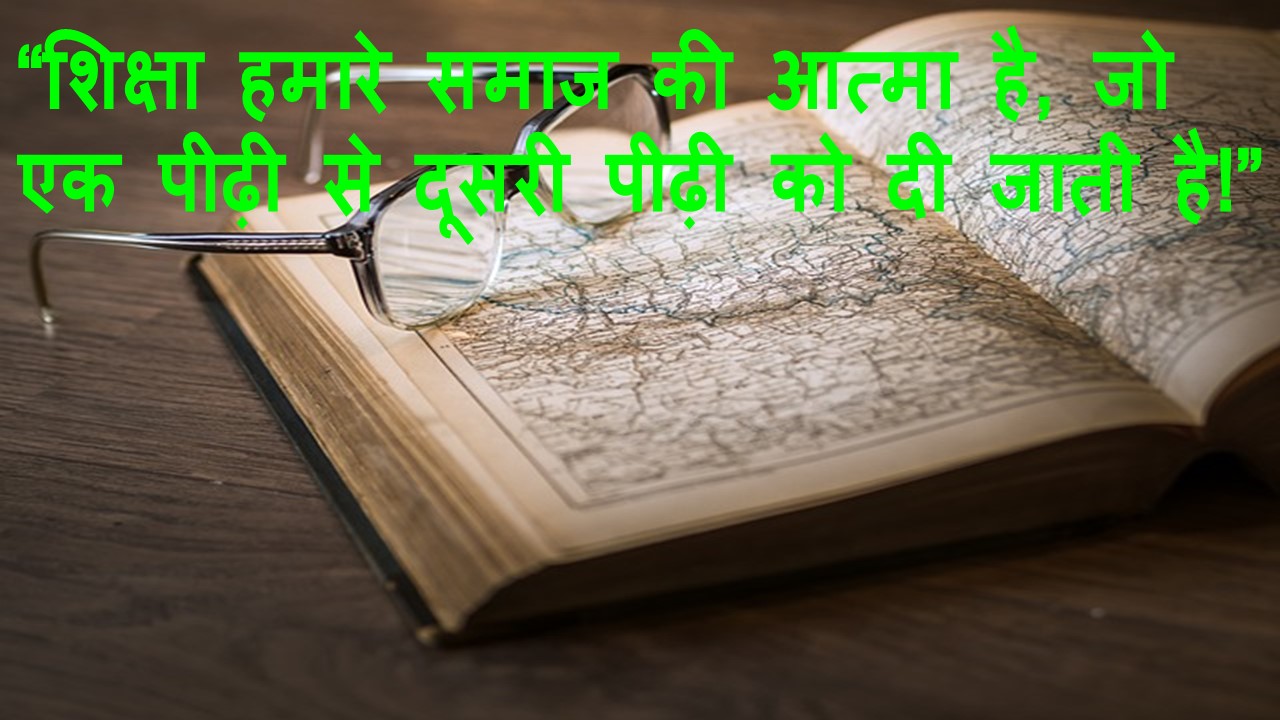 “शिक्षा हमारे समाज की आत्मा है, जो
एक पीढ़ी से दूसरी पीढ़ी को दी जाती है!”